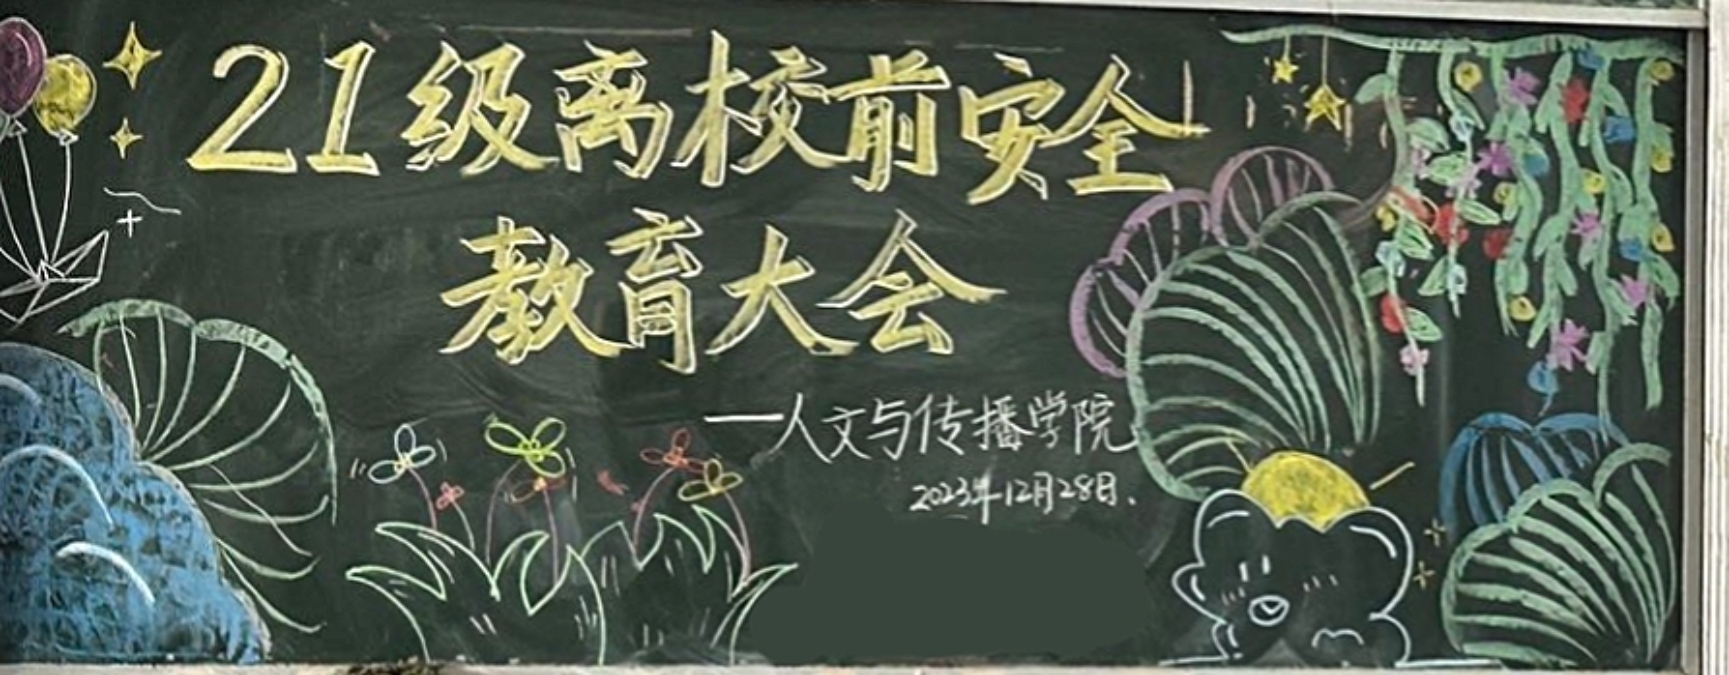 21级离校前安全
教育大会
—人文与传播学院
2023年12月28日.